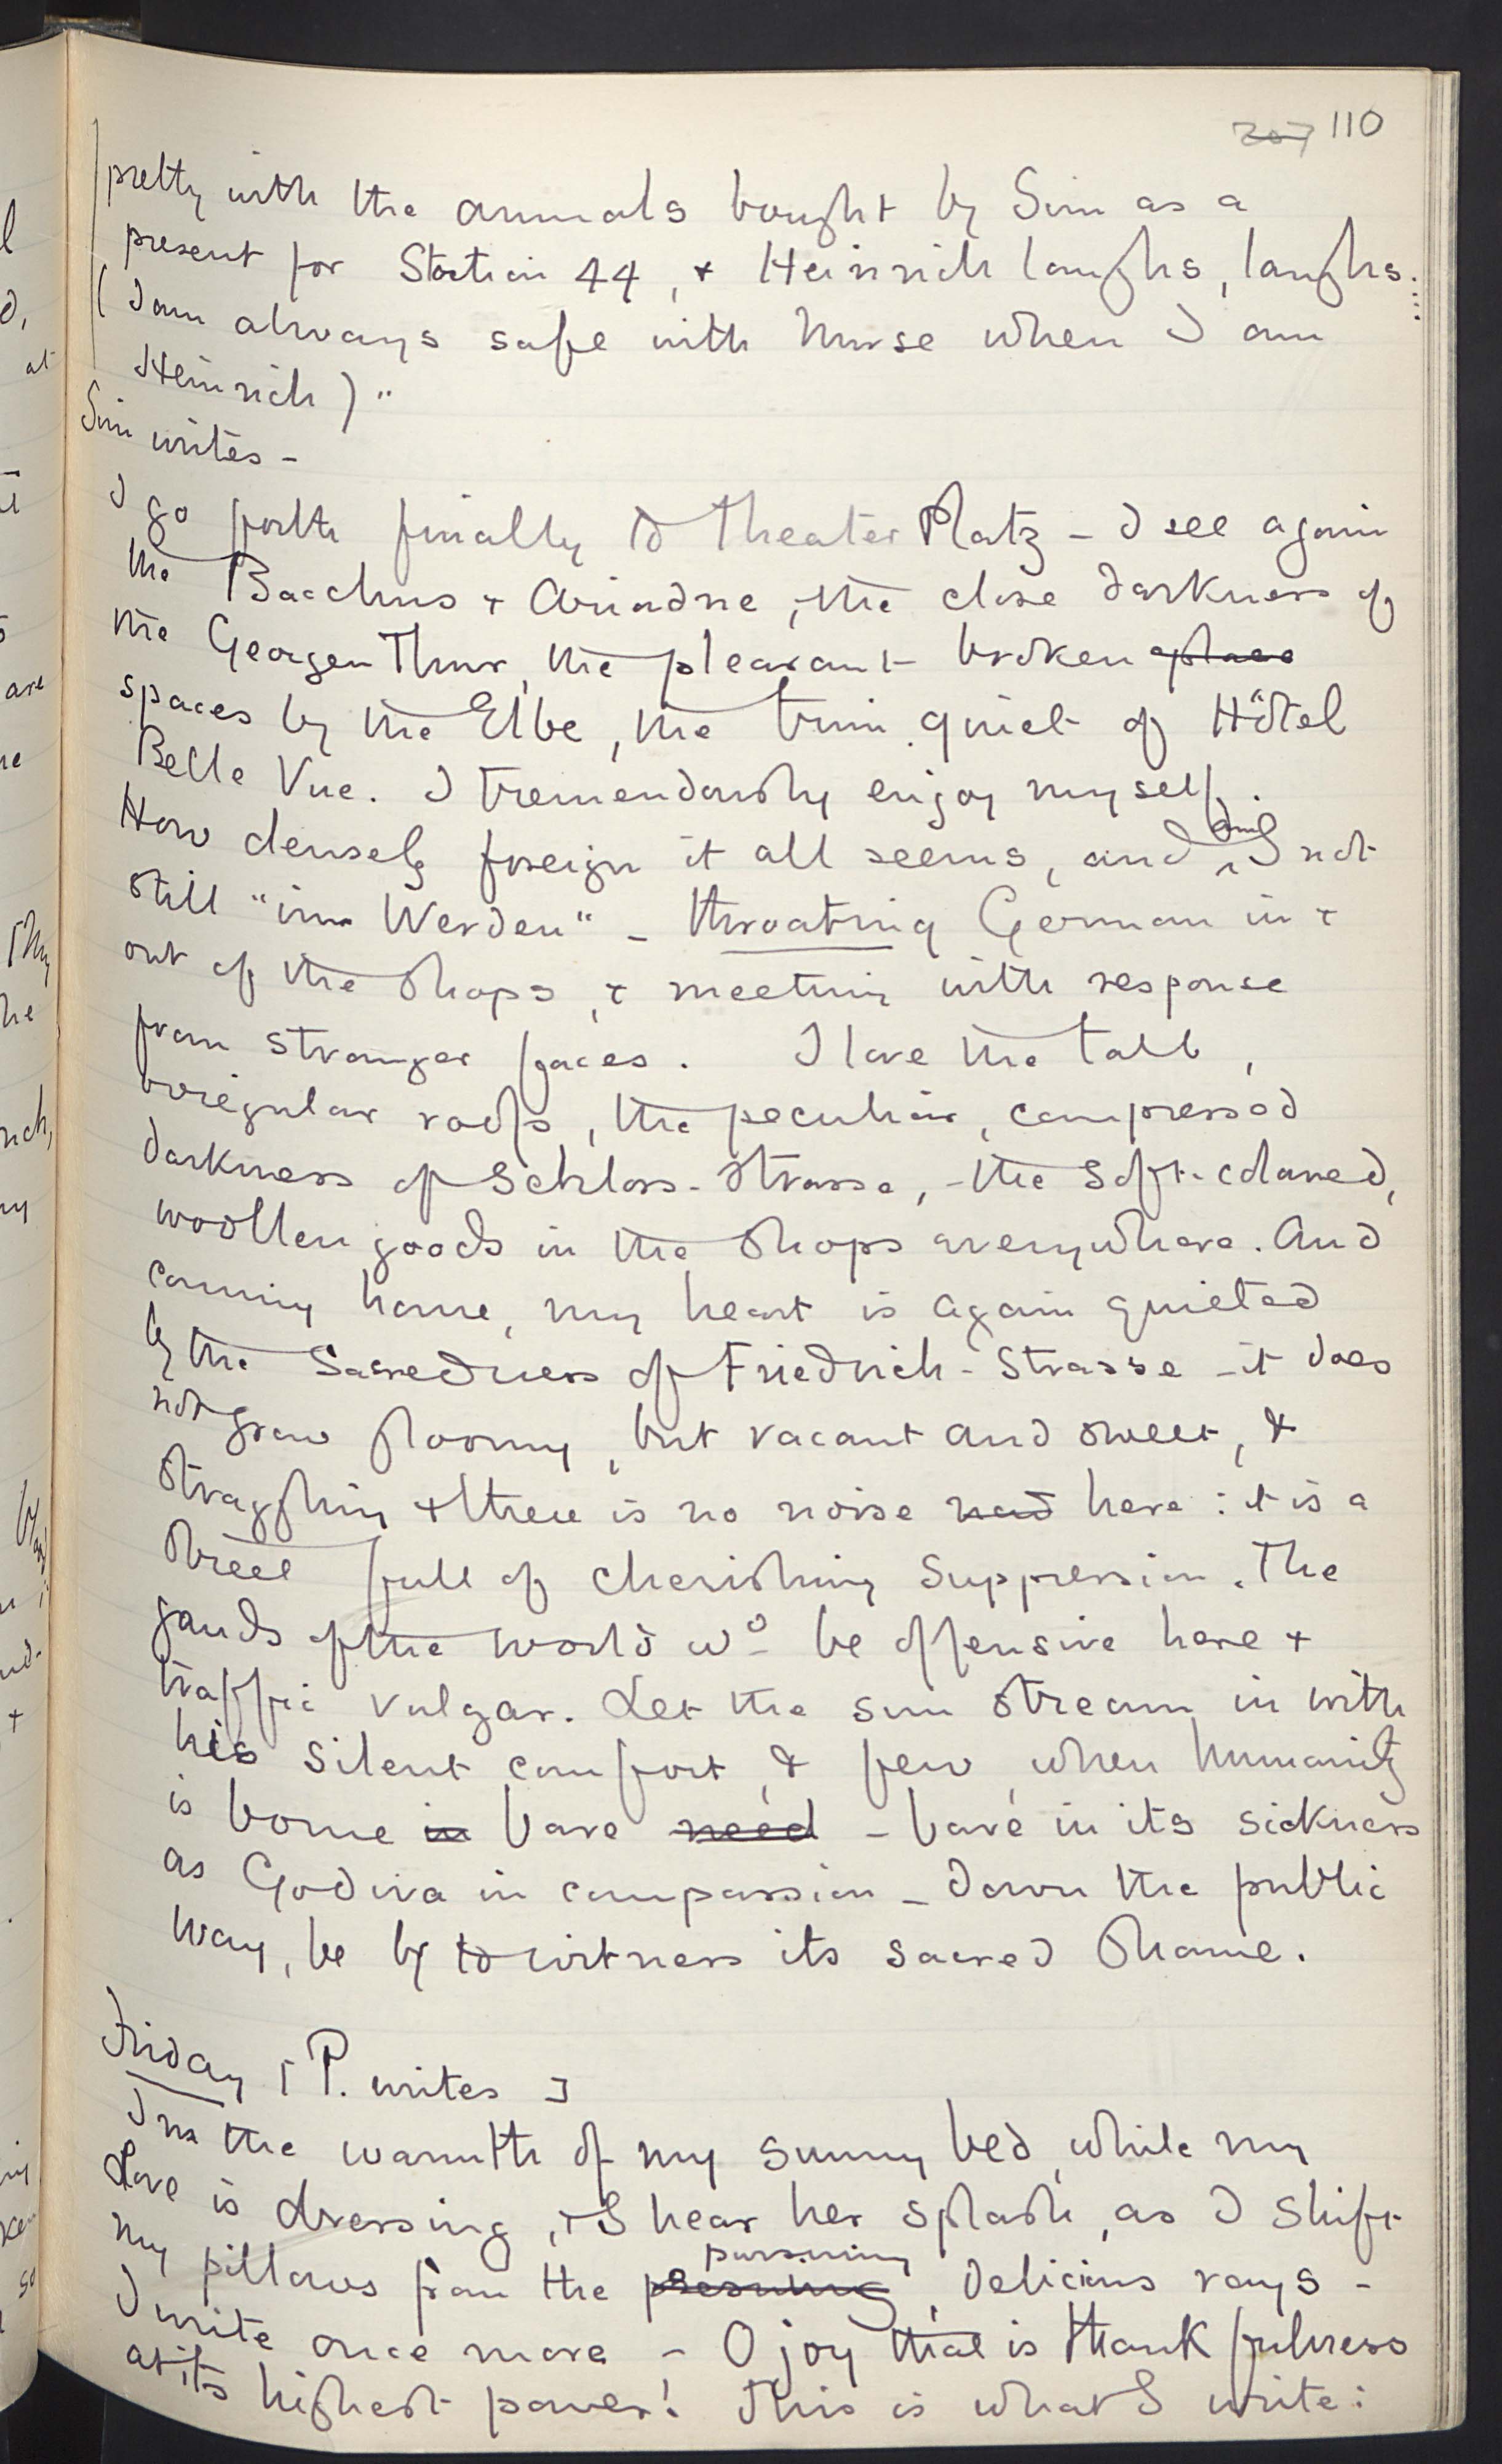 207 110
pretty with the animals bought by Sim as a
present for Station 44, + Heinrich laughs, laughs....
(I am always safe with Nurse when I am
Heinrich)"
Sim writes -
I go forth finally to Theater Platz - I see again
the Bacchus + Ariadne, the close darkness of
the Georgen Thur, the pleasant broken
spaces by the Elbe, the trim quiet of Hôtel
Belle Vue. I tremendously enjoy myself.
How densely foreign it all seems, and am I not
still "im Werden" - throating German in +
out of the shops, + meeting with response
from stranger faces. I love the tall,
irregular roofs, the peculiar, compressed
darkness of Schloss-Strasse, - the soft-coloured,
woollen goods in the shops everywhere. And
coming home, my heart is again quieted
by the Sacredness of Friedrich-Strasse - it does
not grow gloomy, but vacant and sweet, &
straggling + there is no noise here: it is a
street full of cherishing suppression. The
gauds of the world wd be offensive here +
traffic vulgar. Let the sun stream in with
his silent comfort, & few, when humanity
is borne in bare need - bare in its sickness
as Godiva in compassion - down the public
way, be by to witness its sacred shame.
Friday [P. writes]
In the warmth of my sunny bed, while my
Love is dressing, + I hear her splash, as I shift
my pillows from the pursuing, delicious rays -
I write once more - O joy that is thankfulness
at its highest power! This is what I write: